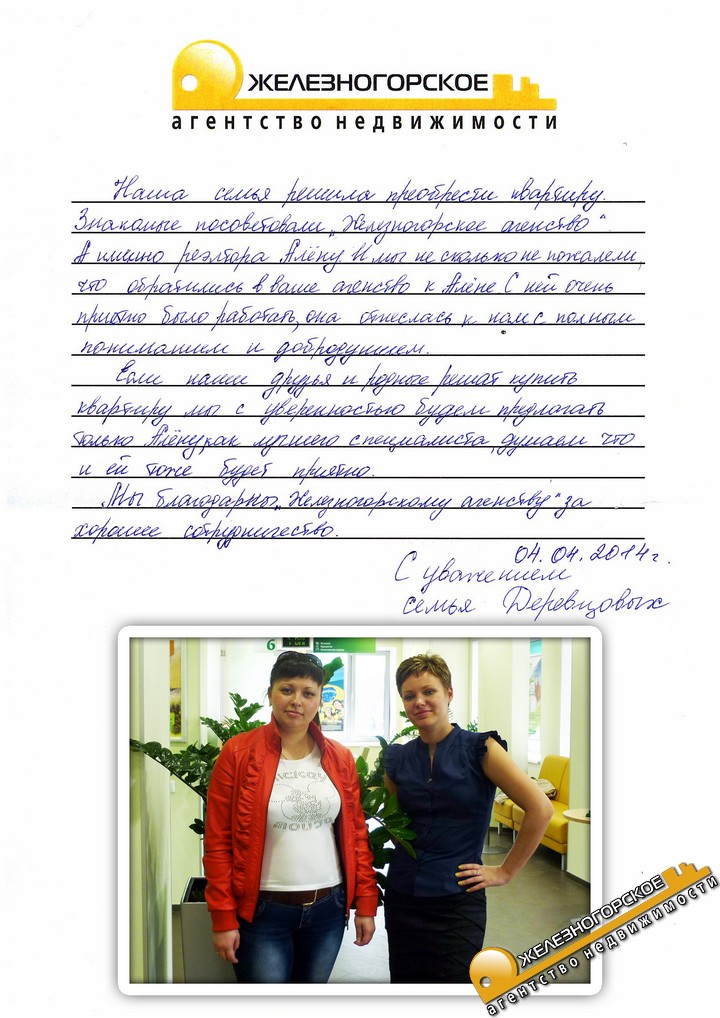 ЖЕЛЕЗНОГОРСКОЕ
агентство недвижимости
Наша семья решила преобрести квартиру.
Знакомые посоветовали „Железногорское агенство“.
А именно реэлтора Алёну. И мы не сколько не пожалели,
что обратились в ваше агенство к Алёне. С ней очень
приятно было работать, она отнеслась к нам с полным
пониманием и добродушием.
Если наши друзья и родные решат купить
квартиру мы с уверенностью будем предлагать
только Алёну, как лучшего специалиста, думаем что
и ей тоже будет приятно.
Мы благодарны „Железногорскому агенству“ за
хорошее сотрудничество.
04.04.2014г.
С уважением
семья Деревцовых
6
ЖЕЛЕЗНОГОРСКОЕ
агентство недвижимости